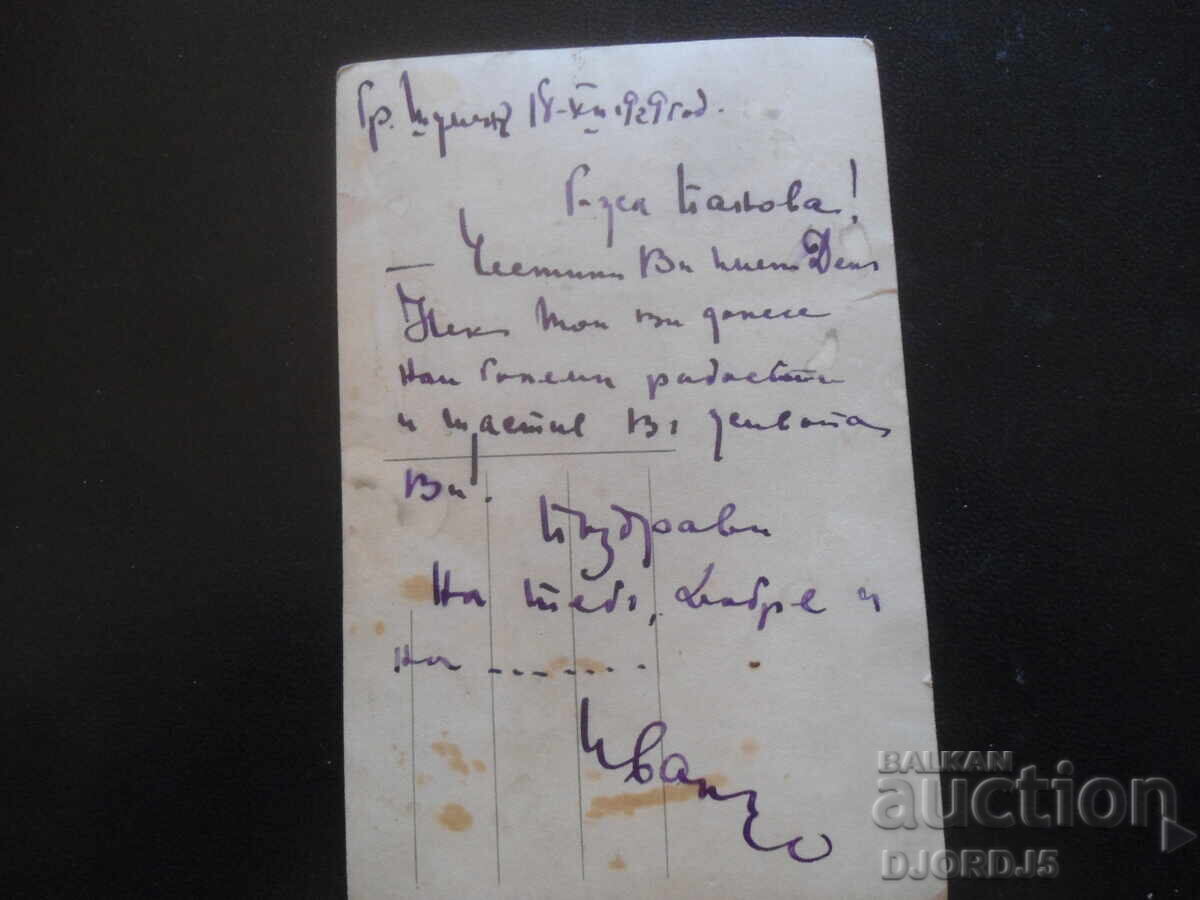 гр. Шумен 18-XII 1929 год.
Г-жа Панова!
— Честити Ви имен Ден
Нека той Ви донесе
най големи радости
и щастие въ живота
Ви.
Поздрави
На тебъ, Добре и
на .......
Иванчо
BALKAN
auction
DJORDJ5